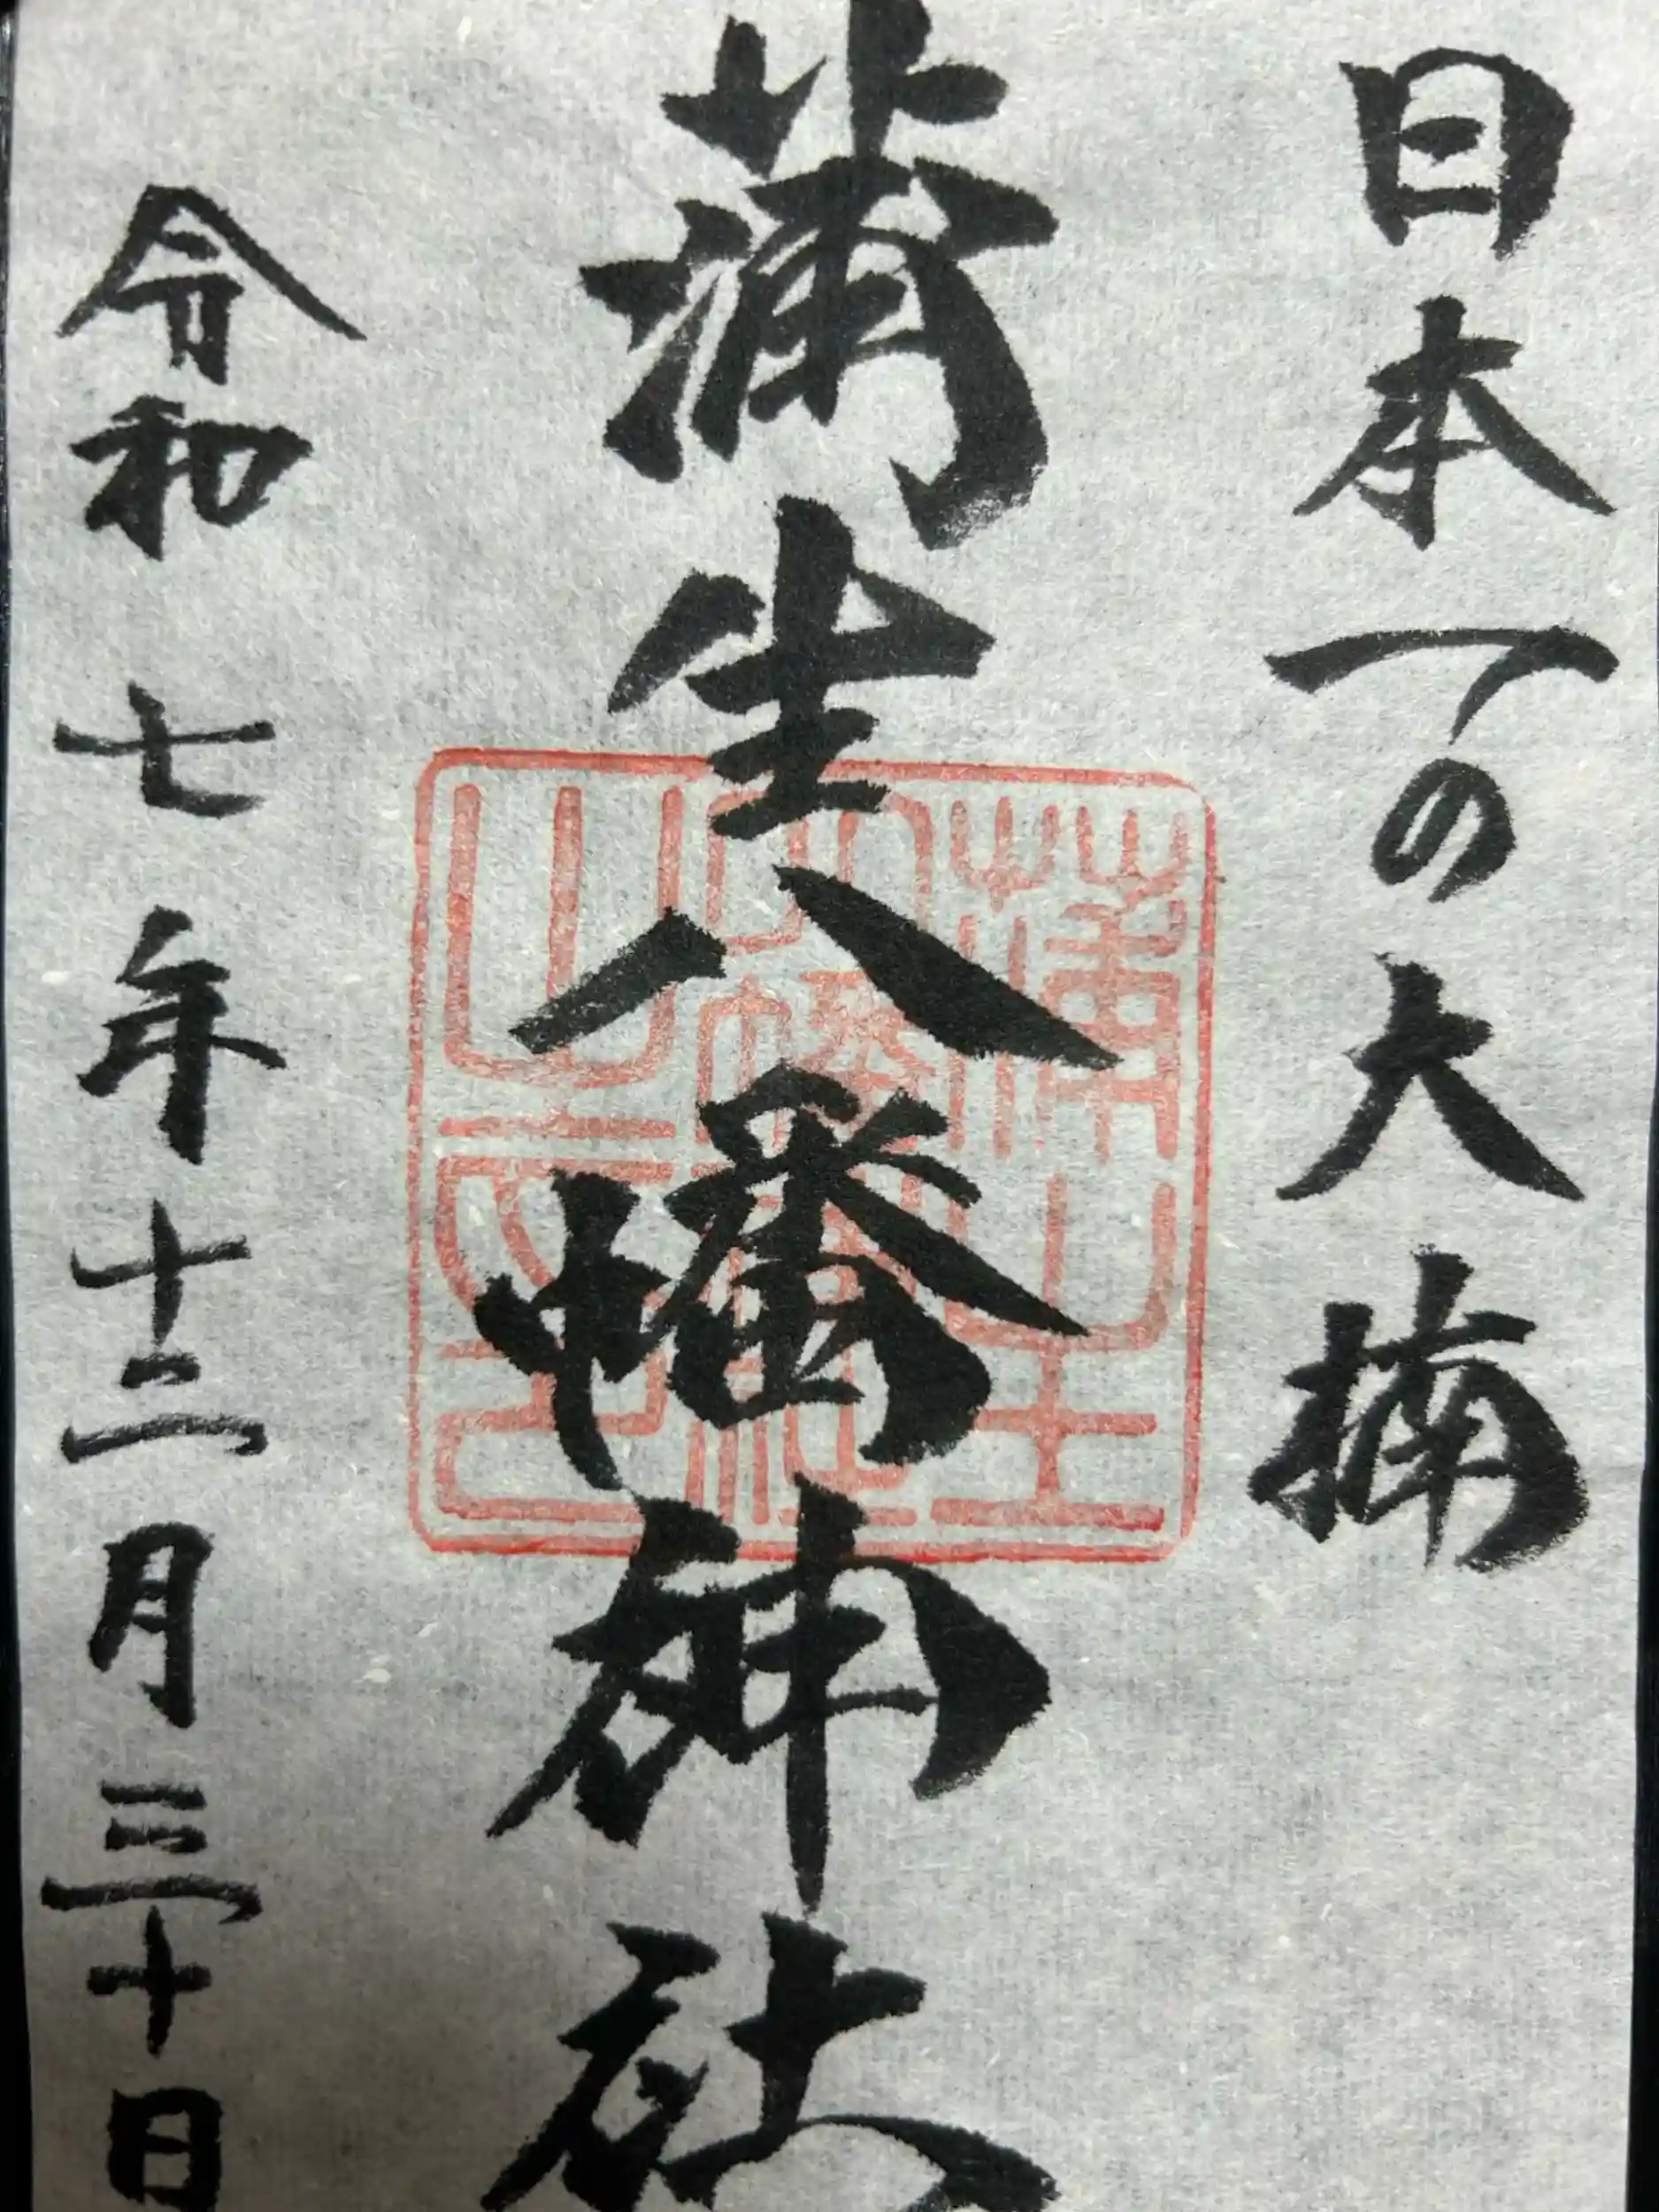 日本一の大楠
蒲生八幡神社
令和七年十二月三十日
蒲生八幡神社之印